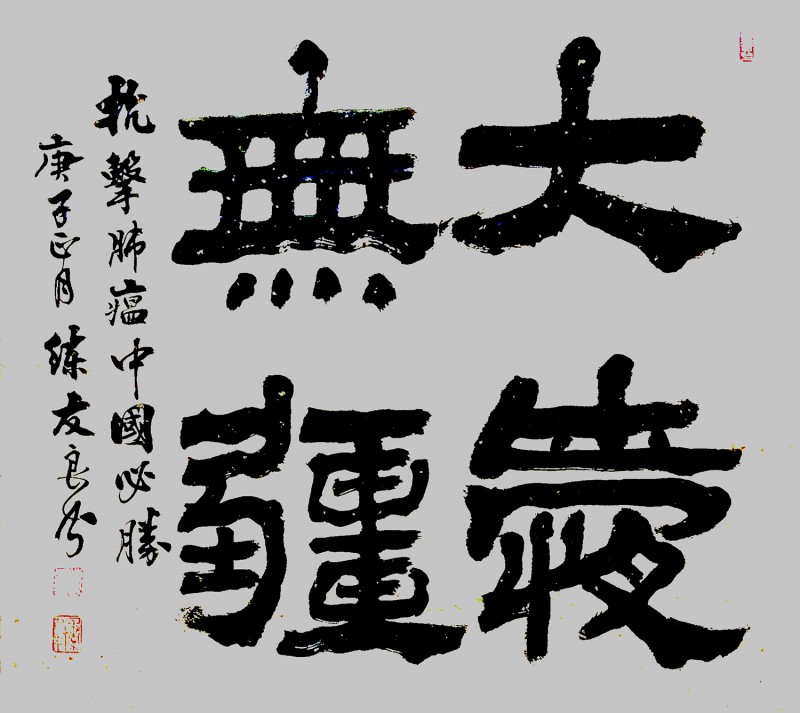 大愛
無疆
抗擊肺瘟中國必勝
庚子正月練友良書